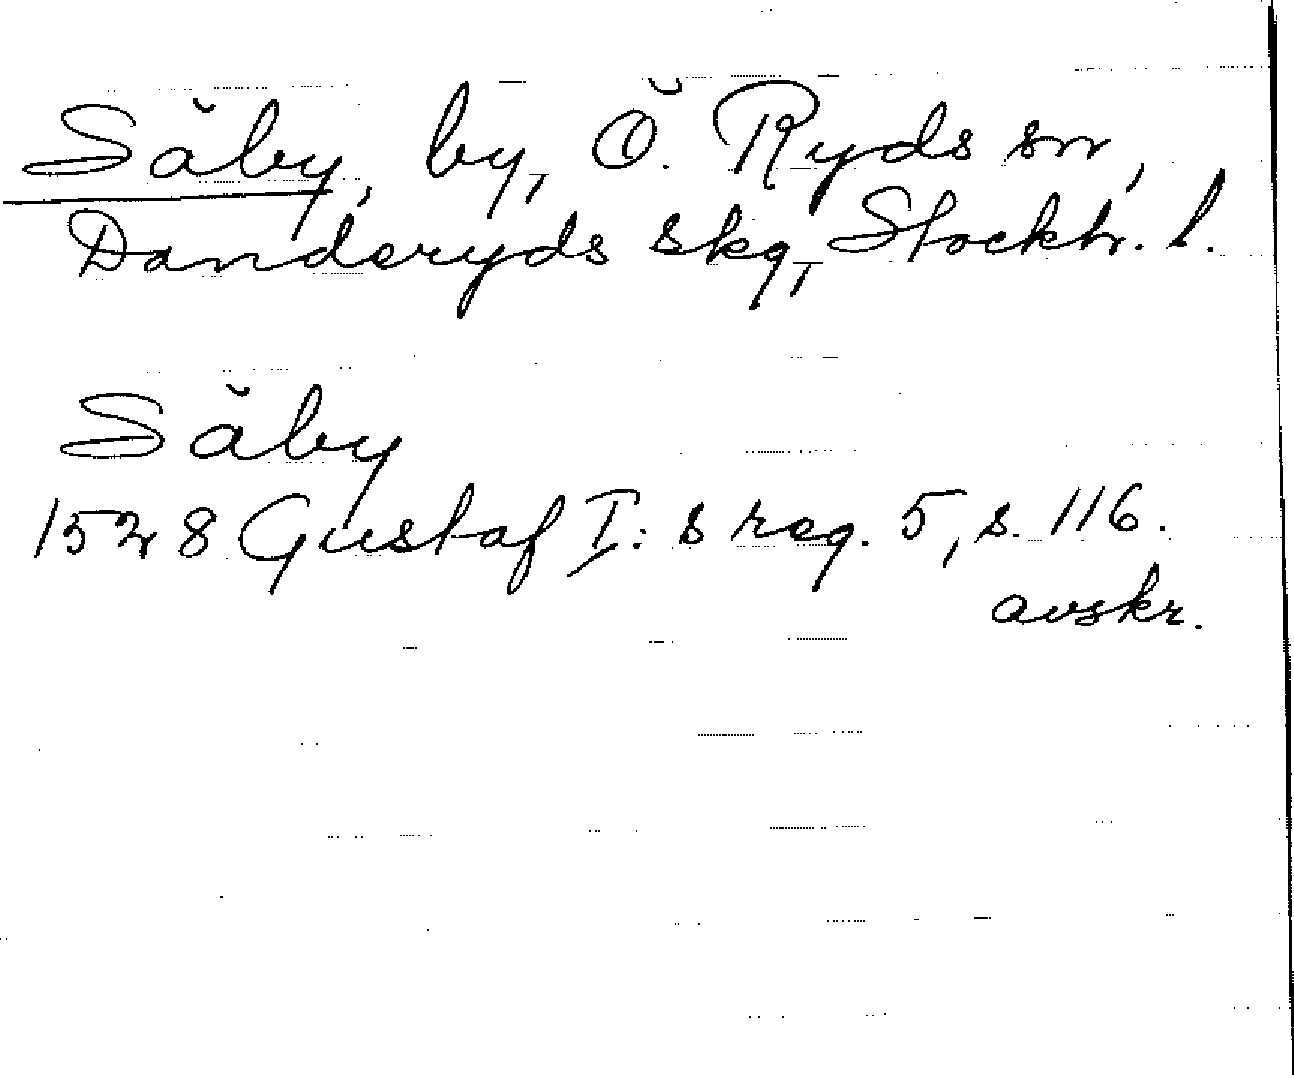 Säby, by, Ö. Ryds sn,
Danderyds skg, Stockh. l.
Säby
1528 Gustaf I:s reg. 5, s. 116.
avskr.